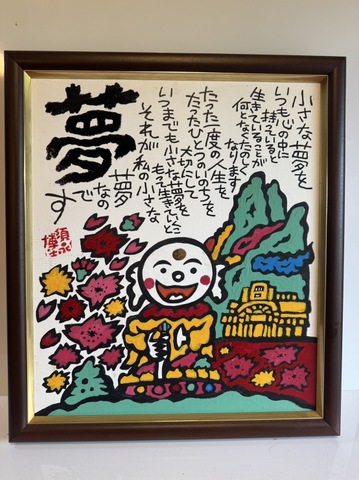 小さな夢を
いつも心の中に
持っていると
生きていることが
何となくたのしく
なります
たった一度の人生を
たったひとつのいのちを
大切にして
いつまでも小さな夢を
もって生きていくこと
それが私の小さな
夢
なの
で
す
夢
須永
博士